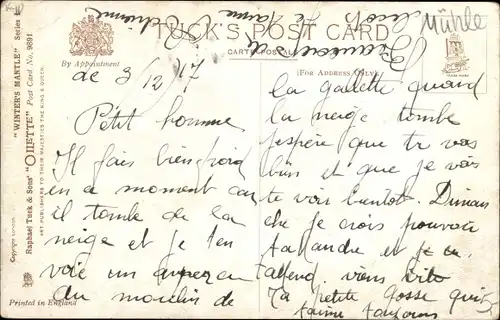 Mühle
TUCK'S POST CARD
CARTE POSTALE
By Appointment
(FOR ADDRESS ONLY)
TRADE MARK
de 3/12/17
Petit homme
Il fais bien froid
en ce moment car
il tombe de la
neige et je t'en
voie un aperçu
du moulin de
la galette quand
la neige tombe
J'espère que tu vas
bien et que je vais
te voir bientot. Diman
che je crois pouvoir
t'attendre et je
t'attend viens vite
Ta petite gosse qui
t'aime toujours
Printed in England
Copyright London.
Raphael Tuck & Sons' "OILETTE" "WINTER'S MANTLE" Series
Post Card No. 9891
ART PUBLISHERS TO THEIR MAJESTIES THE KING & QUEEN